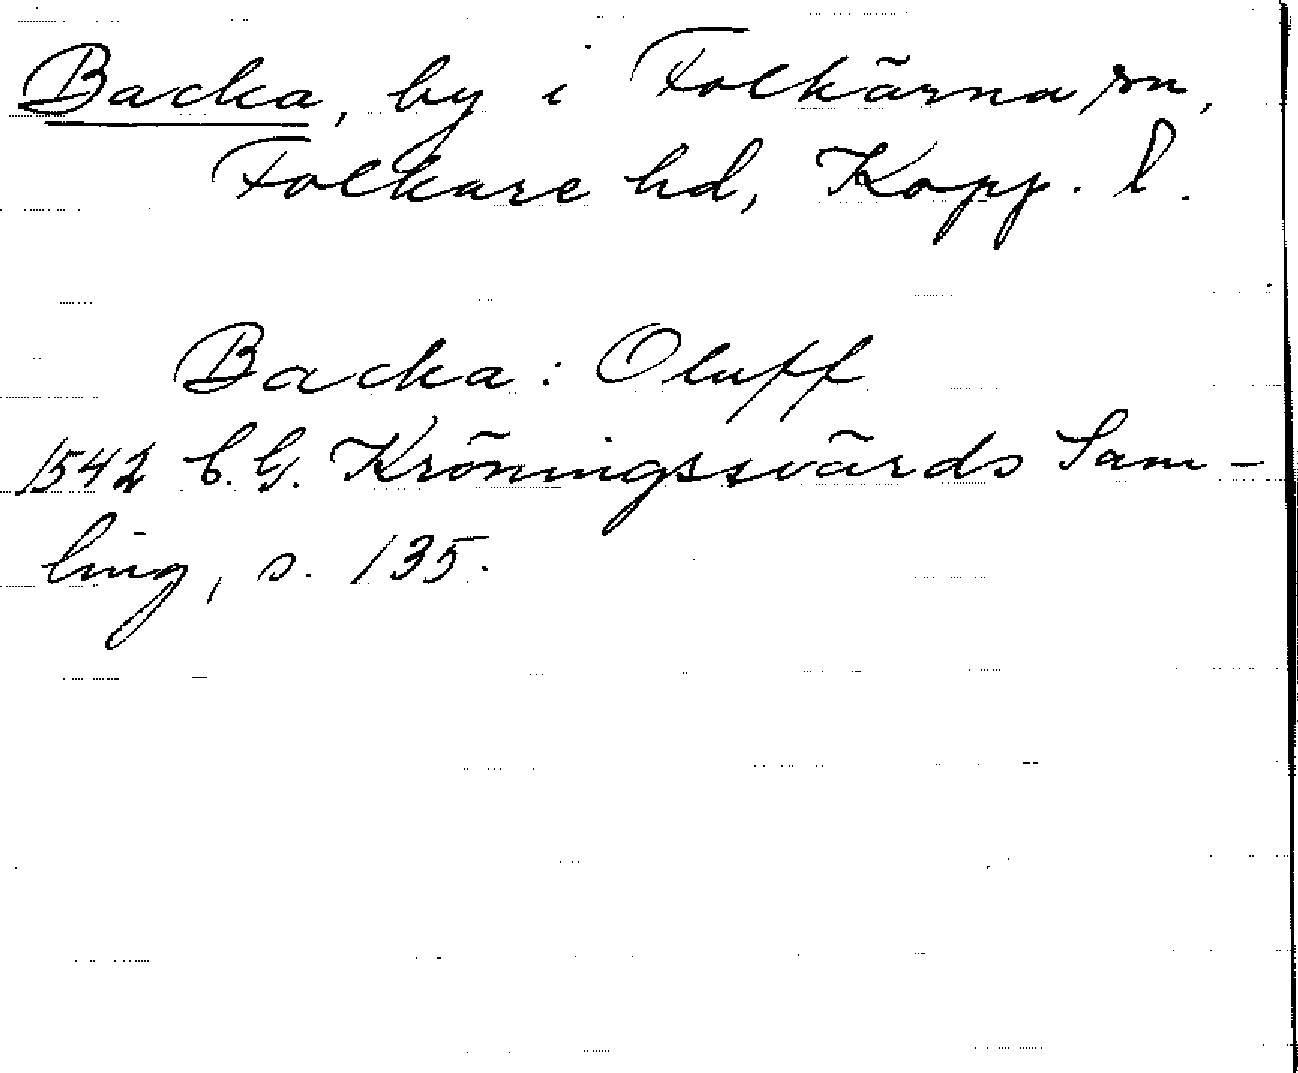 Backa, by i Folkärna sn,
Folkare hd, Kopp. l.
Backa: Oluff
1542 C. G. Kröningssvärds Sam-
ling, s. 135.